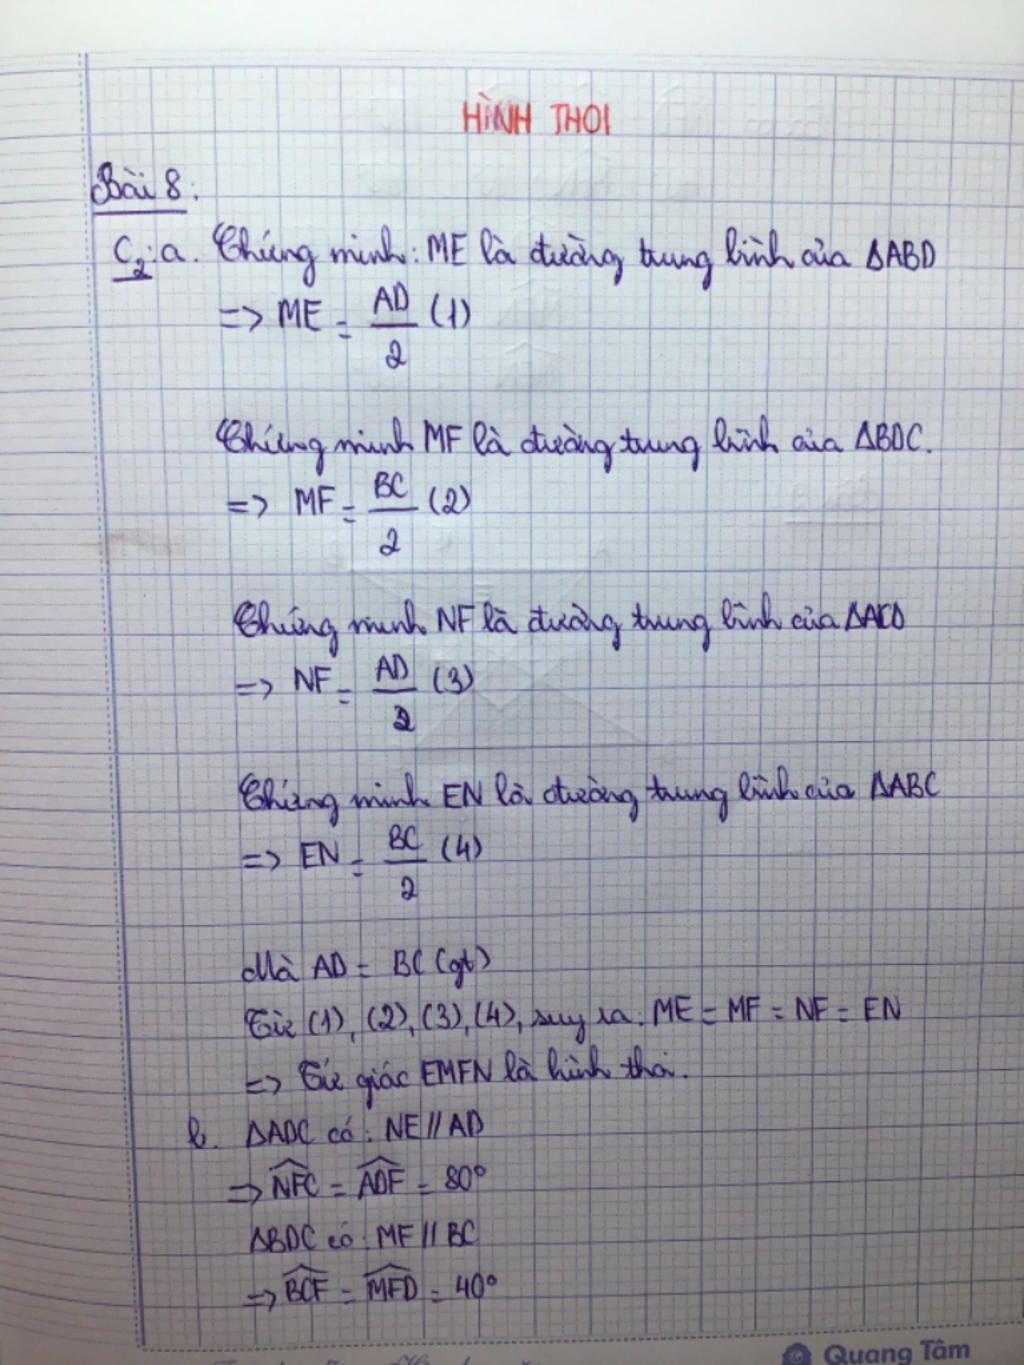 HÌNH THOI
Bài 8:
C₂: a. Chứng minh: ME là đường trung bình của ΔABD
=> ME = AD/2 (1)
Chứng minh MF là đường trung bình của ΔBDC.
=> MF = BC/2 (2)
Chứng minh NF là đường trung bình của ΔACD
=> NF = AD/2 (3)
Chứng minh EN là đường trung bình của ΔABC
=> EN = BC/2 (4)
Mà AD = BC (gt)
Từ (1), (2), (3), (4), suy ra: ME = MF = NF = EN
=> Tứ giác EMFN là hình thoi.
b. ΔADC có: NE // AD
=> \widehat{NFC} = \widehat{ADF} = 80°
ΔBDC có: MF // BC
=> \widehat{BCF} = \widehat{MFD} = 40°
Quang Tâm